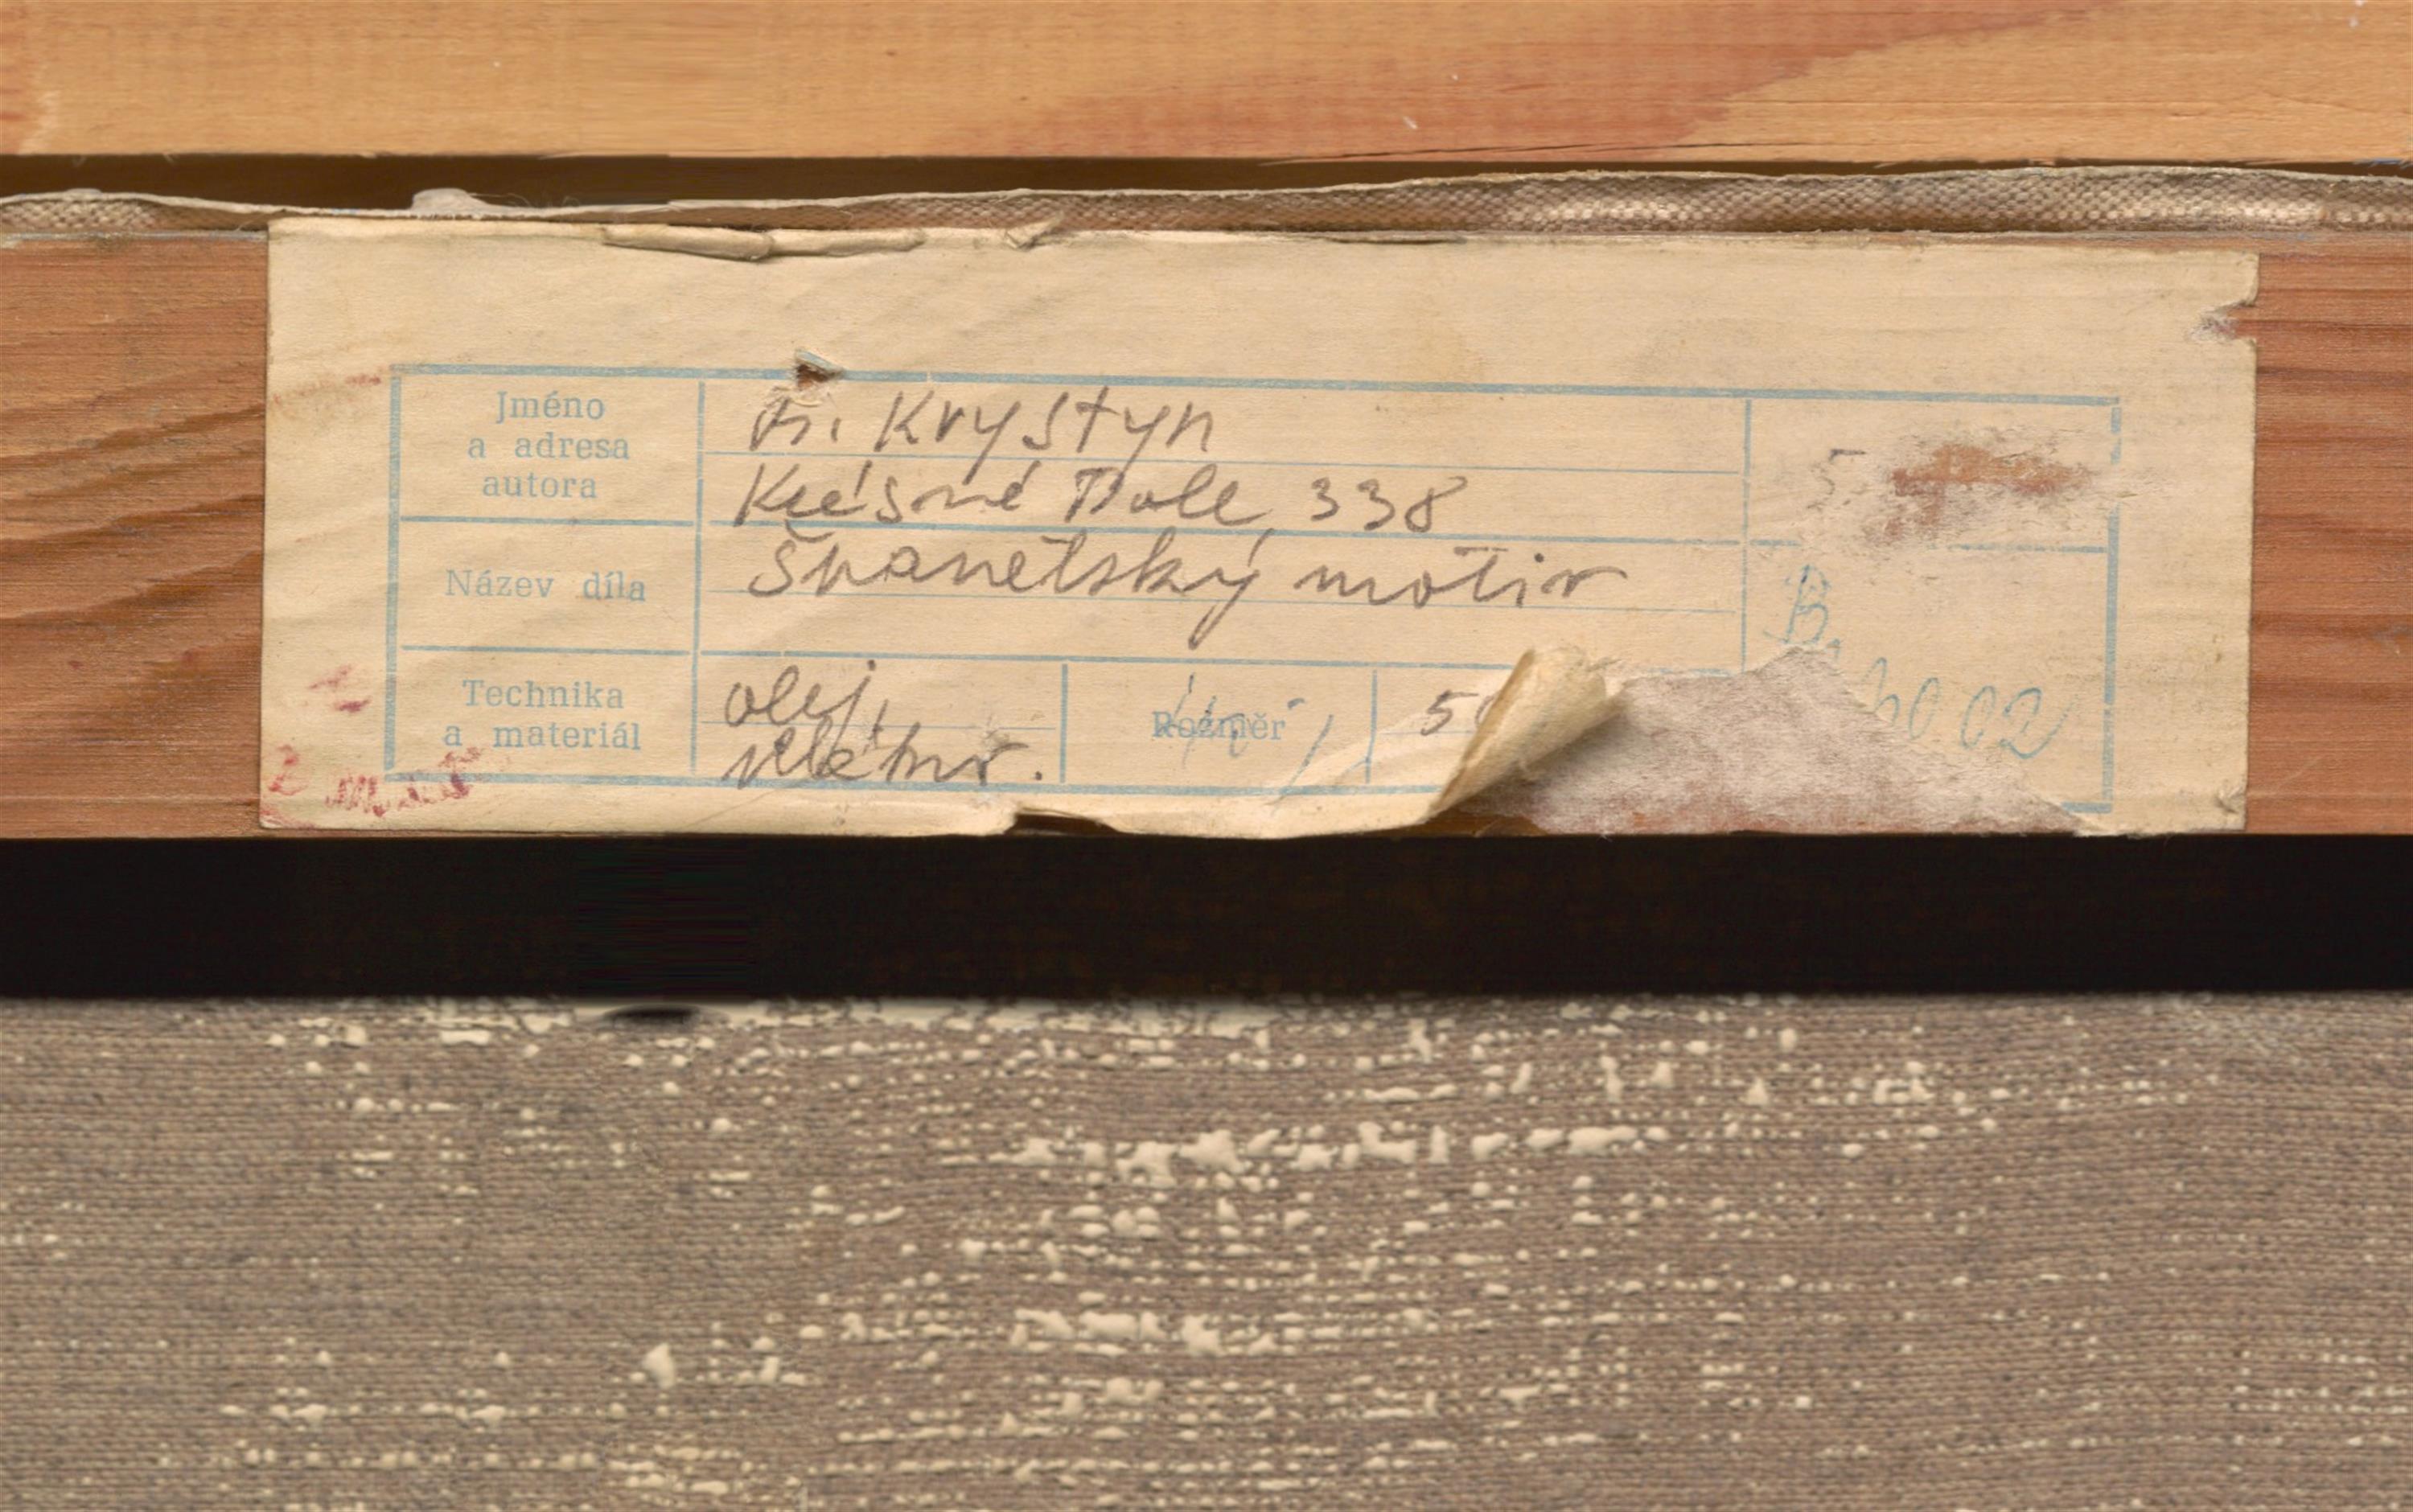 Jméno
a adresa
autora
Fr. Krystyn
Krásné Pole, 338
5.
Název díla
Španělský motiv
B.
Technika
a materiál
olej,
plátno.
Rozměr
5
02